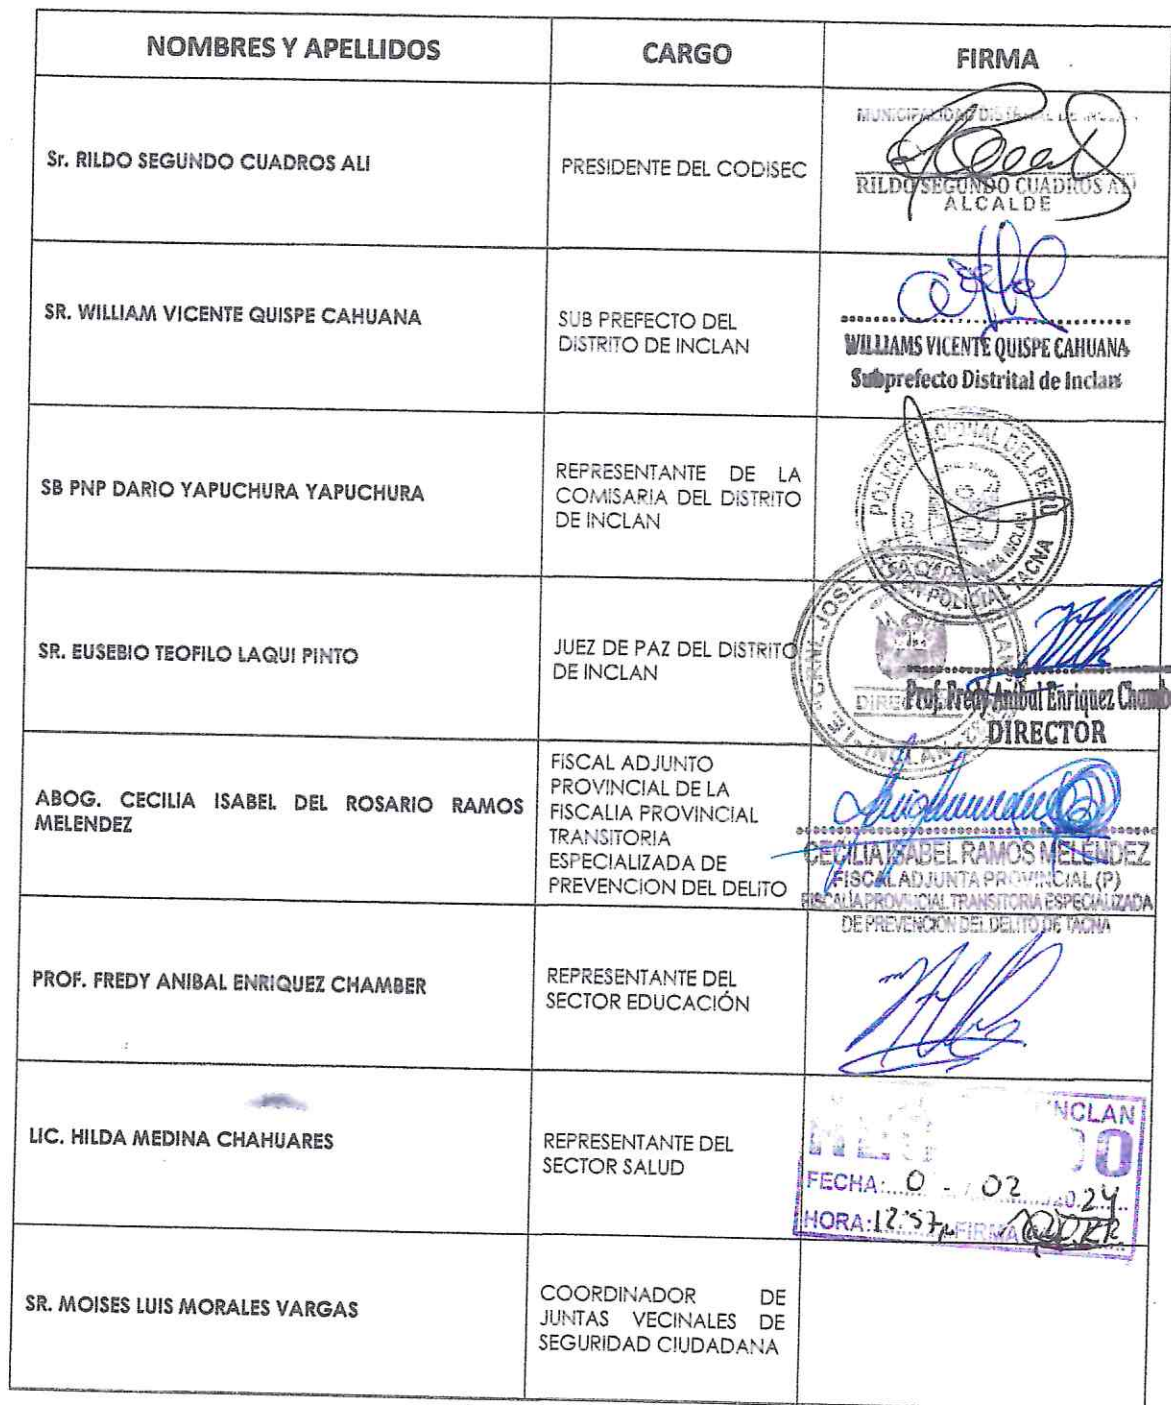 NOMBRES Y APELLIDOS
CARGO
FIRMA
Sr. RILDO SEGUNDO CUADROS ALI
PRESIDENTE DEL CODISEC
MUNICIPALIDAD DISTRITAL DE INCLAN
RILDO SEGUNDO CUADROS ALI
ALCALDE
SR. WILLIAM VICENTE QUISPE CAHUANA
SUB PREFECTO DEL
DISTRITO DE INCLAN
WILLIAMS VICENTE QUISPE CAHUANA
Subprefecto Distrital de Inclan
SB PNP DARIO YAPUCHURA YAPUCHURA
REPRESENTANTE DE LA
COMISARIA DEL DISTRITO
DE INCLAN
POLICIA NACIONAL DEL PERU
POLICIAL TACNA
SR. EUSEBIO TEOFILO LAQUI PINTO
JUEZ DE PAZ DEL DISTRITO
DE INCLAN
JOSE
INCLAN
Prof. Fredy Anibal Enriquez Chamb
DIRECTOR
ABOG. CECILIA ISABEL DEL ROSARIO RAMOS
MELENDEZ
FISCAL ADJUNTO
PROVINCIAL DE LA
FISCALIA PROVINCIAL
TRANSITORIA
ESPECIALIZADA DE
PREVENCION DEL DELITO
CECILIA ISABEL RAMOS MELÉNDEZ
FISCAL ADJUNTA PROVINCIAL (P)
FISCALIA PROVINCIAL TRANSITORIA ESPECIALIZADA
DE PREVENCION DEL DELITO DE TACNA
PROF. FREDY ANIBAL ENRIQUEZ CHAMBER
REPRESENTANTE DEL
SECTOR EDUCACIÓN
LIC. HILDA MEDINA CHAHUARES
REPRESENTANTE DEL
SECTOR SALUD
INCLAN
FECHA: 0 - / 02 2024
HORA: 12:57 FIRMA
SR. MOISES LUIS MORALES VARGAS
COORDINADOR DE
JUNTAS VECINALES DE
SEGURIDAD CIUDADANA